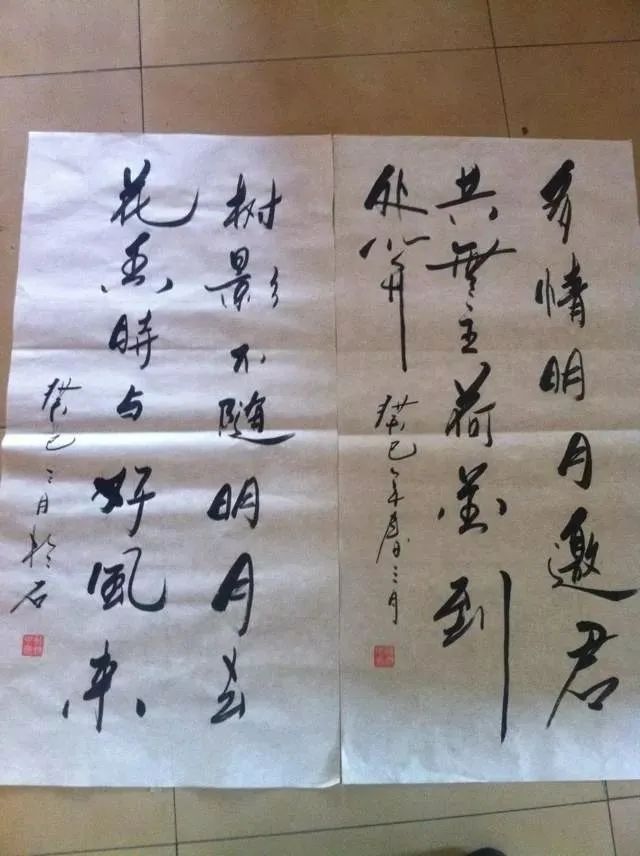 多情明月邀君
共無主荷花到
处开
癸巳年春三月
树影不随明月去
花香時与好風来
癸巳三月於石